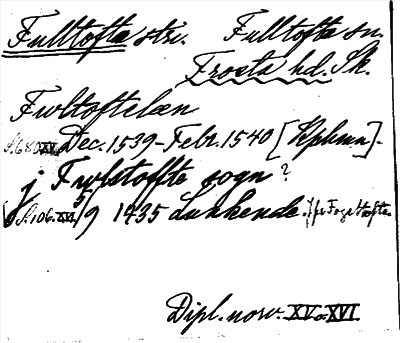 Fulltofta stn. Fulltofta sn.
Frosta hd. Sk.
Fwltoftelæn
S. 680 XV. Dec. 1539 - Febr. 1540 [Kphmn].
j Fwlstoffte sogn?
(S. 106. XVI. 5/9 1435 Lunkende.
Dipl. norv. XV o XVI.